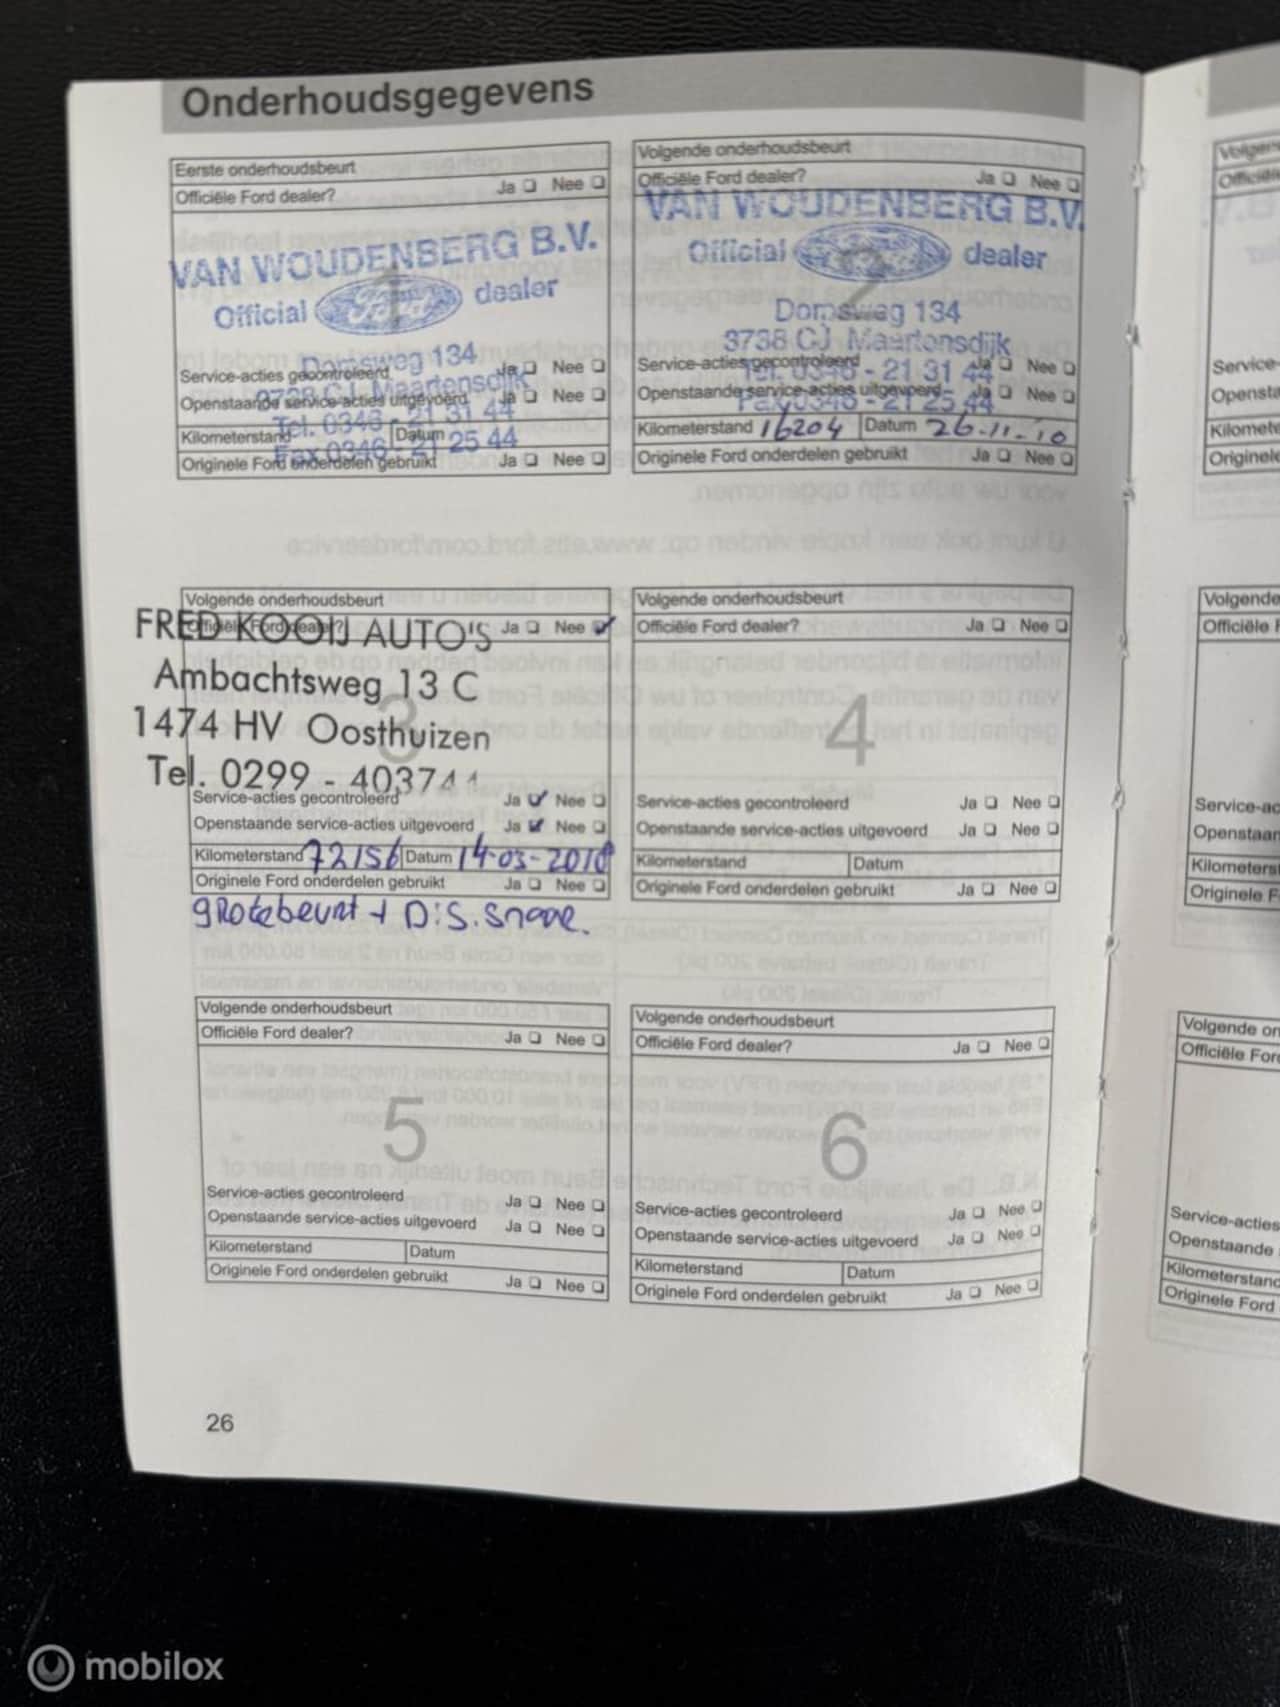 Onderhoudsgegevens
Eerste onderhoudsbeurt
Officiële Ford dealer? Ja Nee
VAN WOUDENBERG B.V.
1
Official Ford dealer
Dorpsweg 134
Service-acties gecontroleerd Ja Nee
3738 CJ Maartensdijk
Openstaande service-acties uitgevoerd Ja Nee
Tel. 0346 - 21 31 44
Kilometerstand Datum
Fax 0346 - 21 25 44
Originele Ford onderdelen gebruikt Ja Nee
Volgende onderhoudsbeurt
Officiële Ford dealer? Ja Nee
VAN WOUDENBERG B.V.
Official dealer
2
Dorpsweg 134
3738 CJ Maartensdijk
Service-acties gecontroleerd Ja Nee
Tel. 0346 - 21 31 44
Openstaande service-acties uitgevoerd Ja Nee
Fax 0346 - 21 25 44
Kilometerstand 16204 Datum 26-11-10
Originele Ford onderdelen gebruikt Ja Nee
Volgende onderhoudsbeurt
Officiële Ford dealer? Ja Nee
FRED KOOIJ AUTO'S
Ambachtsweg 13 C
3
1474 HV Oosthuizen
Tel. 0299 - 403744
Service-acties gecontroleerd Ja Nee
Openstaande service-acties uitgevoerd Ja Nee
Kilometerstand 72156 Datum 14-03-2018
Originele Ford onderdelen gebruikt Ja Nee
grotebeurt + D.S.
Volgende onderhoudsbeurt
Officiële Ford dealer? Ja Nee
4
Service-acties gecontroleerd Ja Nee
Openstaande service-acties uitgevoerd Ja Nee
Kilometerstand Datum
Originele Ford onderdelen gebruikt Ja Nee
Volgende onderhoudsbeurt
Officiële Ford dealer? Ja Nee
5
Service-acties gecontroleerd Ja Nee
Openstaande service-acties uitgevoerd Ja Nee
Kilometerstand Datum
Originele Ford onderdelen gebruikt Ja Nee
Volgende onderhoudsbeurt
Officiële Ford dealer? Ja Nee
6
Service-acties gecontroleerd Ja Nee
Openstaande service-acties uitgevoerd Ja Nee
Kilometerstand Datum
Originele Ford onderdelen gebruikt Ja Nee
Service-
Volgende
Officiële
Service-ac
Openstaan
Kilometers
Originele F
Volgende on
Officiële For
Service-acties
Openstaande
Kilometerstand
Originele Ford
26
mobilox